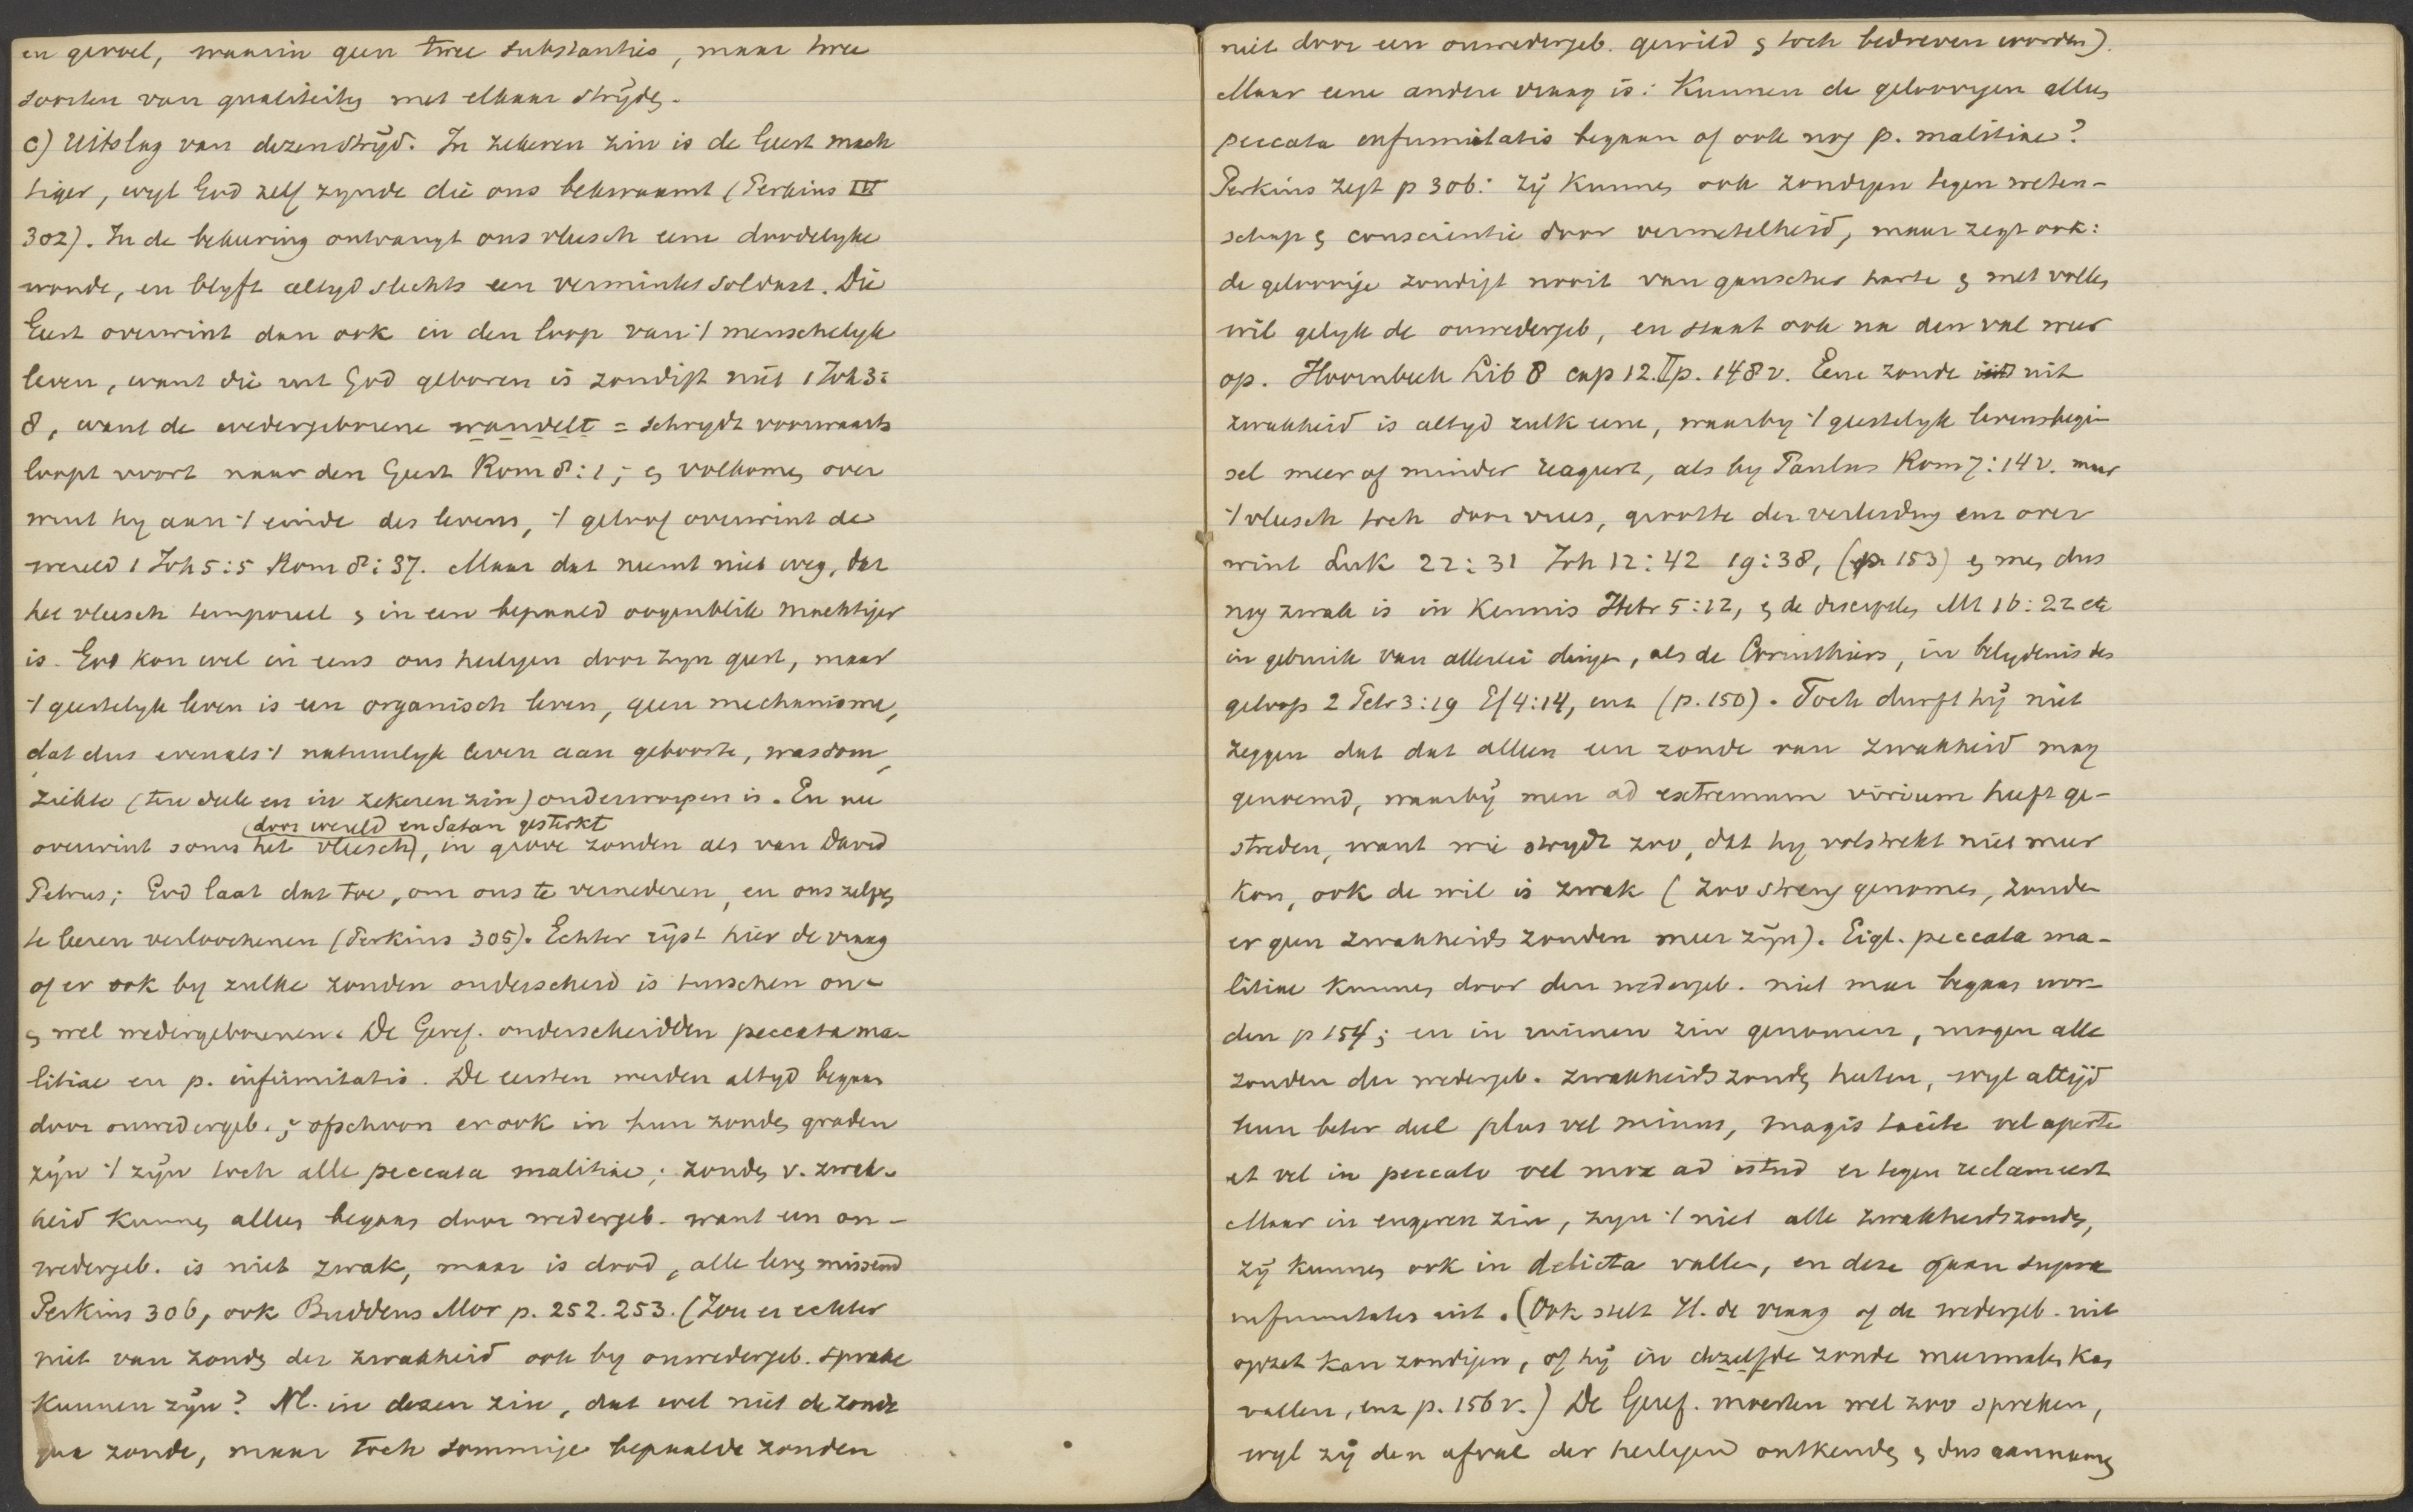 en gevoel, waarin geen twee substanties, maar twee
soorten van qualiteiten met elkaar stryden.
c) Uitslag van dezen stryd. In zekeren zin is de Geest mach
tiger, wyl God zelf zynde die ons bekwaamt (Perkins III
302). In de bekeering ontvangt ons vleesch eene doodelyke
wonde, en blyft altyd slechts een verminkt soldaat. Die
Geest overwint dan ook in den loop van 't menschelyk
leven, want die uit God geboren is zondigt niet 1 Joh 3:
8, want de wedergeborene wandelt = schrydt voorwaarts
loopt voort naar den Geest Rom 8:1; en volkomen over
wint hy aan 't einde des levens, 't geloof overwint de
wereld 1 Joh 5:5 Rom 8:37. Maar dat neemt niet weg, dat
het vleesch temporeel en in een bepaald oogenblik machtiger
is. God kon wel in eens ons heiligen door zyn geest, maar
't geestelyk leven is een organisch leven, geen mechanisme,
dat dus evenals 't natuurlyk leven aan geboorte, wasdom,
ziekte (ten deele en in zekeren zin) onderworpen is. En nu
(door wereld en Satan gesterkt
overwint soms het vleesch), in grove zonden als van David
Petrus; God laat dat toe, om ons te vernederen, en ons zelven
te leeren verloochenen (Perkins 305). Echter ryst hier de vraag
of er ook by zulke zonden onderscheid is tusschen on-
en wel wedergeborenen. De Geref. onderscheidden peccata ma-
litiae en p. infirmitatis. De eersten werden altyd begaan
door onwedergeb. en ofschoon er ook in hun zonden graden
zyn 't zyn toch alle peccata malitiae; zonden v. zwak-
heid kunnen alleen begaan door wedergeb. want een on-
wedergeb. is niet zwak, maar is dood, alle leven missend
Perkins 306, ook Buddeus Mor p. 252. 253. (Zou er echter
niet van zonden der zwakheid ook by onwedergeb. sprake
kunnen zyn? Nl. in dezen zin, dat wel niet de zonde
qua zonde, maar toch sommige bepaalde zonden
niet door een onwedergeb. gewild en toch bedreven worden).
Maar eene andere vraag is: Kunnen de geloovigen alleen
peccata infirmitatis begaan of ook nog p. malitiae?
Perkins zegt p 306: zy kunnen ook zondigen tegen weten-
schap en conscientie door vermetelheid, maar zegt ook:
de geloovige zondigt nooit van ganscher harte en met vollen
wil gelyk de onwedergeb, en staat ook na den val weer
op. Hoornbeek Lib 8 cap 12. II p. 148 v. Eene zonde uit
zwakheid is altyd zulk eene, waarby 't geestelyk levensbegin
sel meer of minder reageert, als by Paulus Rom 7:14 v. maar
't vleesch toch door vrees, grootte der verleiding enz over
wint Luk 22:31 Joh 12:42 19:38, (p 153) en men dus
nog zwak is in kennis Hebr 5:12, en de discipelen Mt 16:22 etc
in gebruik van allerlei dingen, als de Corinthiers, in belydenis des
geloofs 2 Petr 3:19 Ef 4:14, enz (p. 150). Toch durft hy niet
zeggen dat dat alleen een zonde van zwakheid mag
genoemd, waarby men ad extremum virium heeft ge-
streden, want wie strydt zoo, dat hy volstrekt niet meer
kon, ook de wil is zwak (zoo streng genomen, zouden
er geen zwakheids zonden meer zyn). Eigl. peccata ma-
litiae kunnen door den wedergeb. niet meer begaan wor-
den p 154; en in ruimen zin genomen, mogen alle
zonden der wedergeb. zwakheids zonden heeten, wyl altyd
hun beter deel plus vel minus, magis tacite vel aperte
et vel in peccato vel mox ad istud er tegen reclameert
Maar in engeren zin, zyn 't niet alle zwakheidszonden,
zy kunnen ook in delicta vallen, en deze gaan supra
infirmitates uit. (Ook stelt H. de vraag of de wedergeb. uit
opzet kan zondigen, of hy in dezelfde zonde meermalen kan
vallen, enz p. 156 v.) De Geref. moesten wel zoo spreken,
wyl zy den afval der heiligen ontkenden en dus aannamen